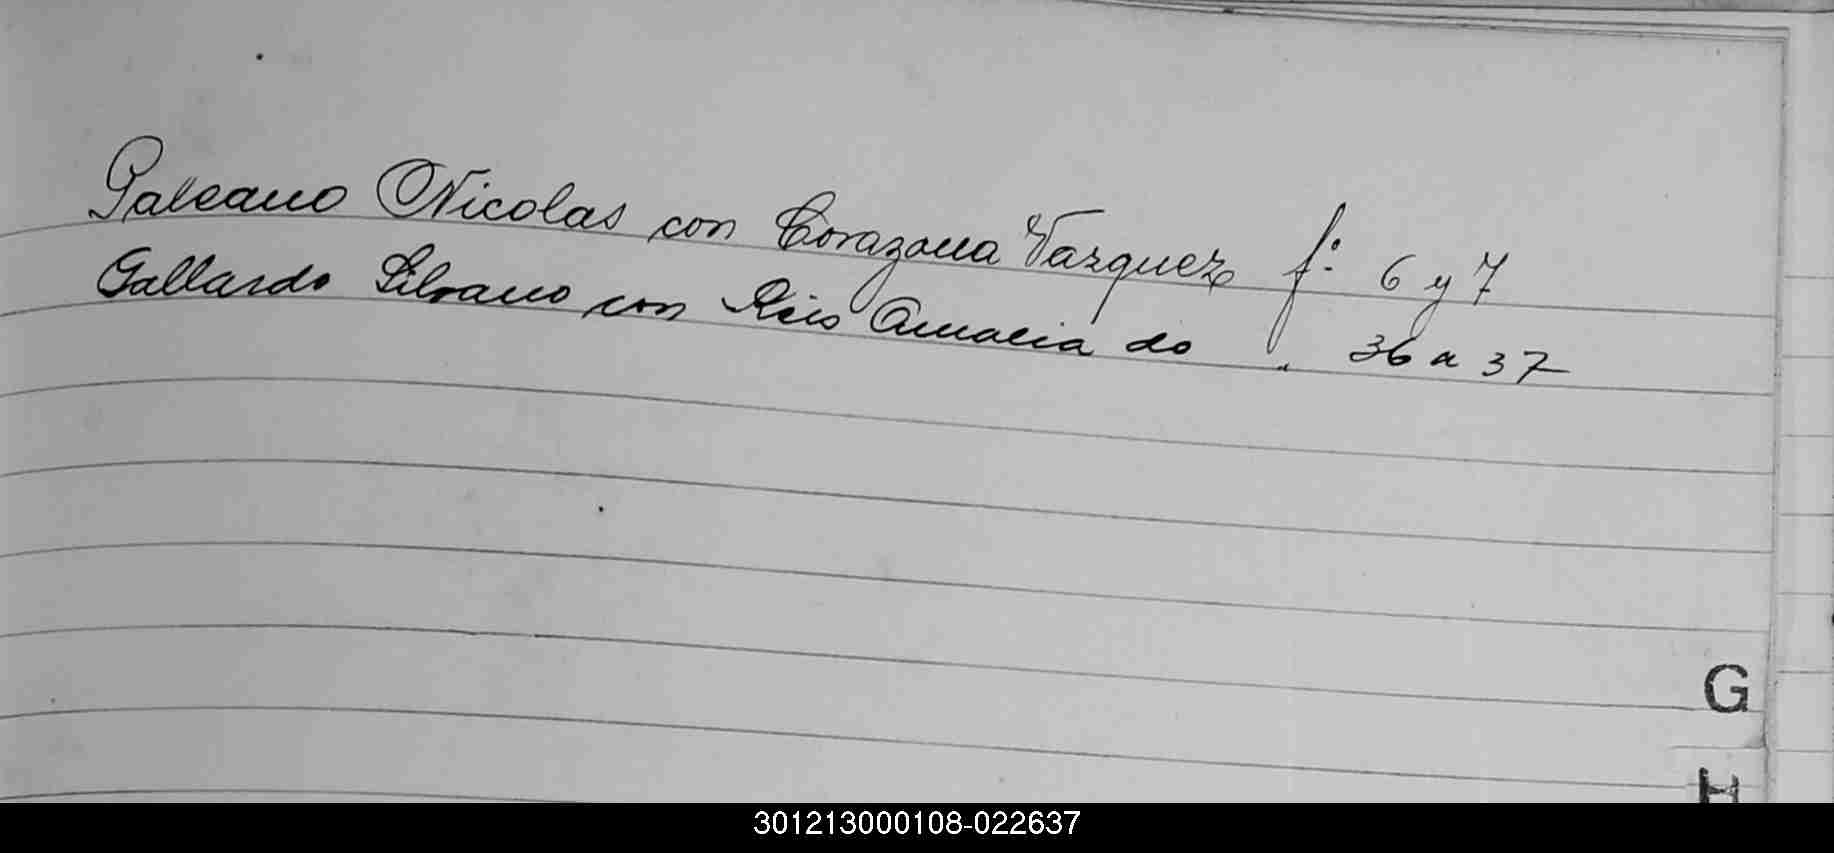 Galeano Nicolas con Corazona Vazquez f: 6 y 7
Gallardo Silvano con Reis Amalia do " 36 a 37
G
H
301213000108-022637